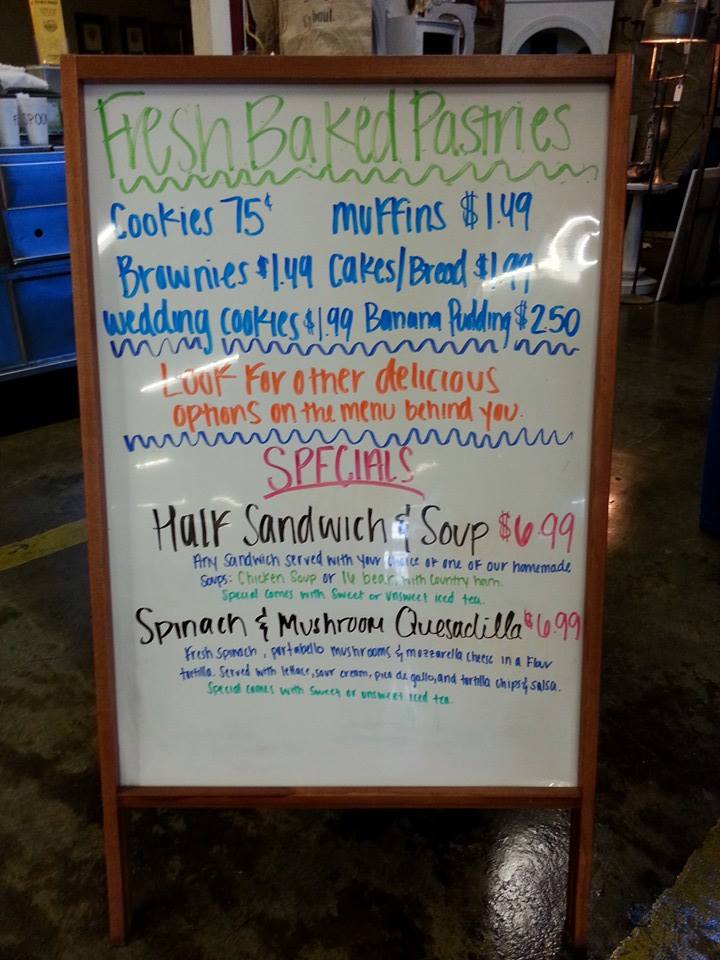 Fresh Baked Pastries
Cookies 75¢ muffins $1.49
Brownies $1.49 Cakes/Bread $1.99
wedding cookies $1.99 Banana Pudding $2.50
Look For other delicious
options on the menu behind you.
SPECIALS
Half Sandwich & Soup $6.99
Any Sandwich served with your choice of one of our homemade
Soups: Chicken Soup or 16 bean with Country ham.
Special comes with Sweet or Unsweet iced tea.
Spinach & Mushroom Quesadilla $6.99
Fresh spinach, portabello mushrooms & mozzarella cheese in a Flour
tortilla. Served with lettuce, sour cream, pico de gallo, and tortilla chips & salsa.
Special comes with Sweet or unsweet iced tea.